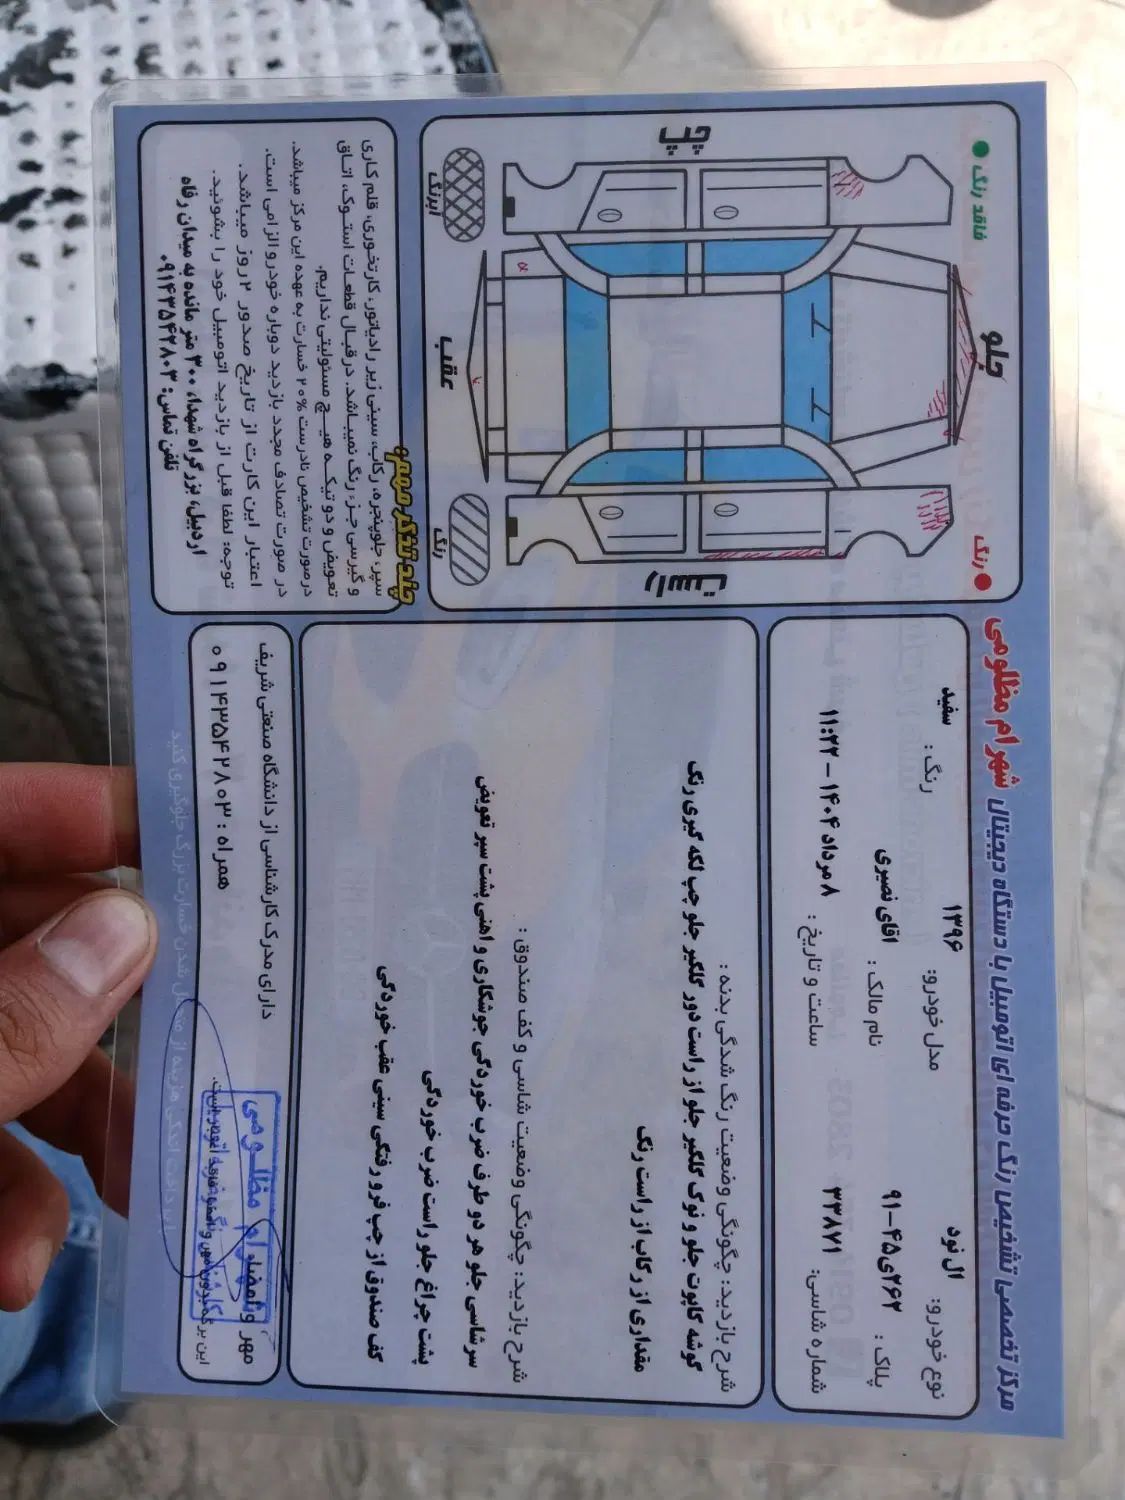 مرکز تخصصی تشخیص رنگ حرفه ای اتومبیل با دستگاه دیجیتال شهرام مظلومی
نوع خودرو: ال نود
مدل خودرو: ۱۳۹۶
رنگ: سفید
پلاک: ۲۶۲ی۴۵-۹۱
نام مالک: اقای نصیری
شماره شاسی: ۳۳۸۷۱
ساعت و تاریخ: ۸ مرداد ۱۴۰۴ - ۱۱:۲۲
شرح بازدید: چگونگی وضعیت رنگ شدگی بدنه:
گوشه کاپوت جلو و نوک گلگیر جلو از راست دور گلگیر جلو چپ لکه گیری رنگ
مقداری از رکاب از راست رنگ
شرح بازدید: چگونگی وضعیت شاسی و کف صندوق:
سر شاسی جلو هر دو طرف ضرب خوردگی جوشکاری و اهنی پشت سپر تعویض
پشت چراغ جلو راست ضرب خوردگی
کف صندوق از چپ فرو رفتگی سینی عقب خوردگی
دارای مدرک کارشناسی از دانشگاه صنعتی شریف
همراه: ۰۹۱۴۳۵۴۲۸۰۳
مهر و امضا
شهرام مظلومی
این برگه بدون مهر و امضا
فاقد رنگ
رنگ
جلو
چپ
راست
عقب
ابرنگ
رنگ
چند تذکر مهم:
سپر، جلوپنجره، رکاب، سینی زیر رادیاتور، کارتخوری، قلم کاری
و گیرسی جزء رنگ نمیباشد. در قبال قطعات استوک، اتاق
تعویض و دو تیکه هیچ مسئولیتی نداریم.
در صورت تشخیص نادرست ۲۰% خسارت به عهده این مرکز میباشد.
در صورت تصادف مجدد بازدید دوباره خودرو الزامی است.
اعتبار این کارت از تاریخ صدور ۲ روز میباشد.
توجه: لطفا قبل از بازدید اتومبیل خود را بشوئید..
اردبیل، بزرگراه شهدا، ۳۰۰ متر مانده به میدان رفاه
تلفن تماس: ۰۹۱۴۳۵۴۲۸۰۳